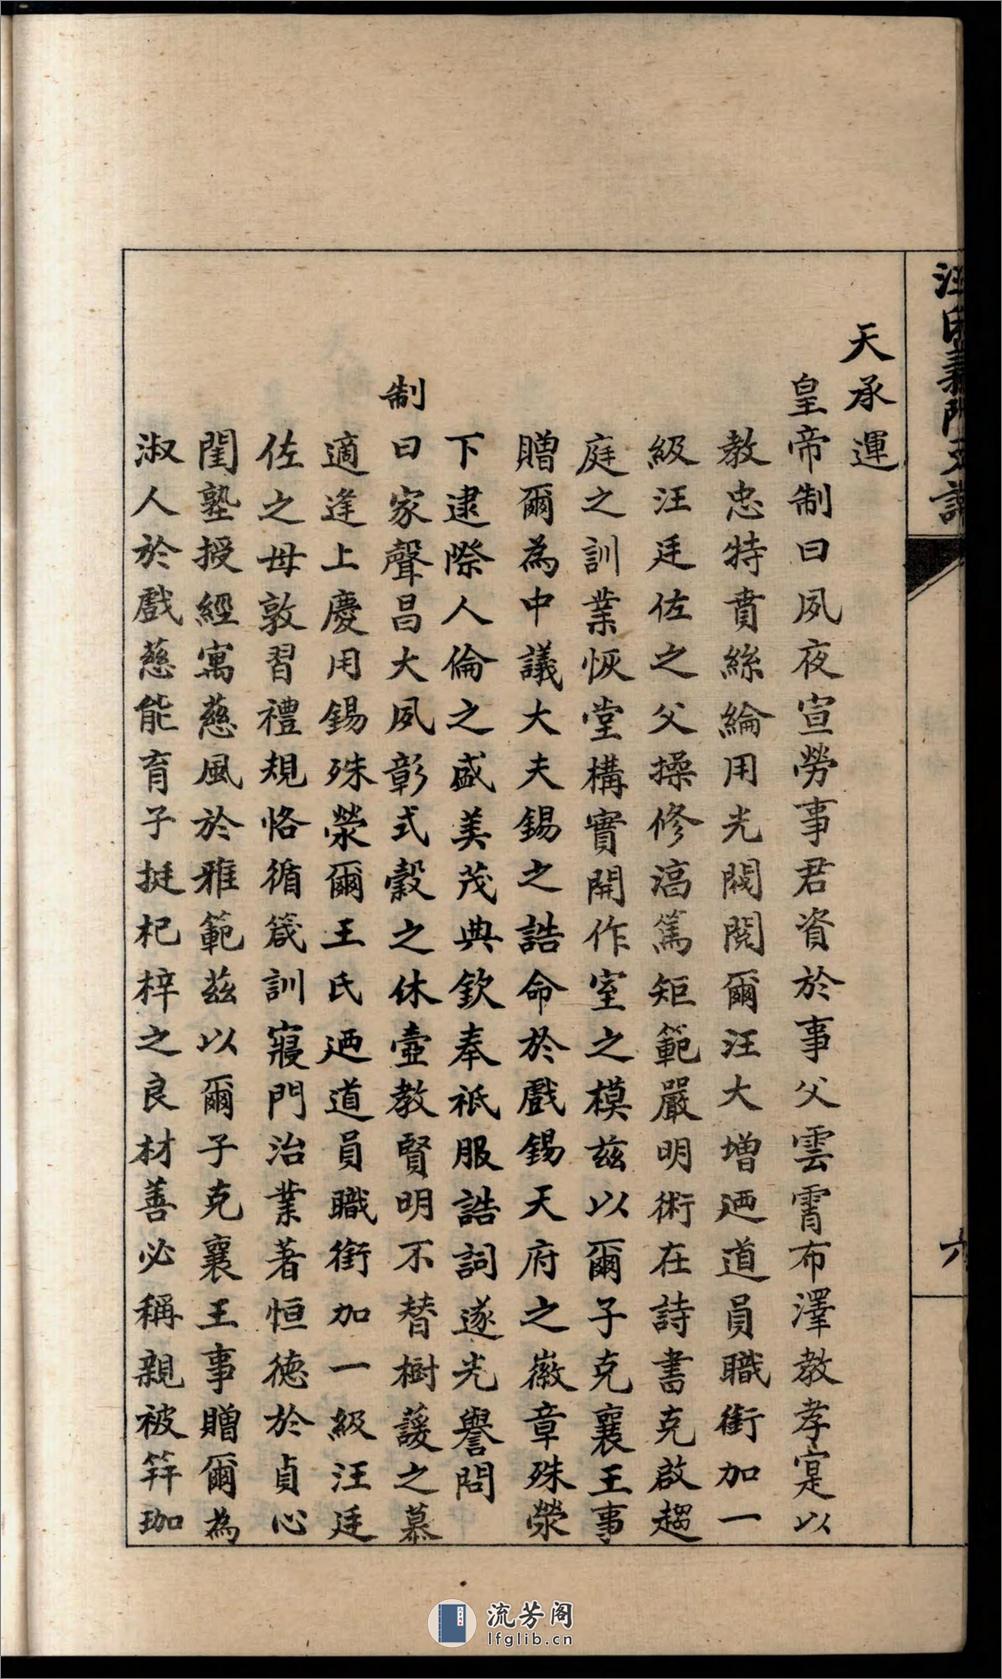 汪氏義門支譜
六
天承運
皇帝制曰夙夜宣勞事君資於事父雲霄布澤教孝寔以
教忠特賁絲綸用光閥閱爾汪大增迺道員職銜加一
級汪廷佐之父操修湻篤矩範嚴明術在詩書克啟趨
庭之訓業恢堂構實開作室之模茲以爾子克襄王事
贈爾為中議大夫錫之誥命於戲錫天府之徽章殊榮
下逮際人倫之盛美茂典欽奉祇服誥詞遂光譽問
制曰家聲昌大夙彰式穀之休壼教賢明不替樹蘐之慕
適逢上慶用錫殊榮爾王氏迺道員職銜加一級汪廷
佐之母敦習禮規恪循箴訓寢門治業著恒德於貞心
閨塾授經寓慈風於雅範茲以爾子克襄王事贈爾為
淑人於戲慈能育子挺杞梓之良材善必稱親被笄珈
流芳阁
lfglib.cn